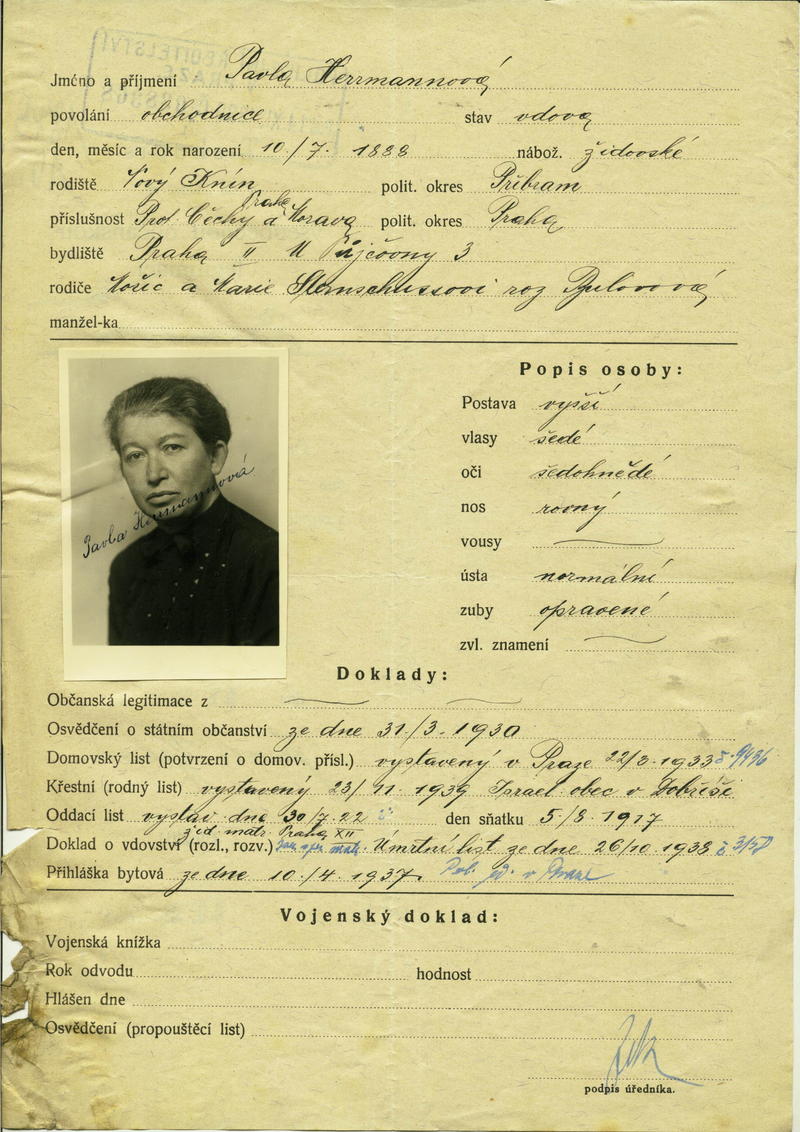 Jméno a příjmení Pavla Herrmannová
povolání obchodnice stav vdova
den, měsíc a rok narození 10/7. 1888 nábož. židovské
rodiště Nový Knín polit. okres Příbram
Praha
příslušnost Prot Čechy a Morava polit. okres Praha
bydliště Praha II U Půjčovny 3
rodiče a Marie Sternschussovi roz
manžel-ka
Popis osoby:
Postava vyšší
vlasy šedé
oči šedohnědé
nos rovný
vousy
ústa normální
zuby opravené
zvl. znamení
Pavla Herrmannová
Doklady:
Občanská legitimace z
Osvědčení o státním občanství ze dne 31/3. 1930
Domovský list (potvrzení o domov. přísl.) vystavený v Praze 22/3. 1933 č. 9436
Křestní (rodný list) vystavený 23/11. 1939 Israel obec v Dobříši
Oddací list vystav. dne 30/7. 22 den sňatku 5/8. 1917
žid. matr. Praha XII
Doklad o vdovství (rozl., rozv.) Úmrtní list ze dne 26/10. 1938 č 3/50
Přihláška bytová ze dne 10./4. 1937. v
Vojenský doklad:
Vojenská knížka
Rok odvodu hodnost
Hlášen dne
Osvědčení (propouštěcí list)
podpis úředníka.